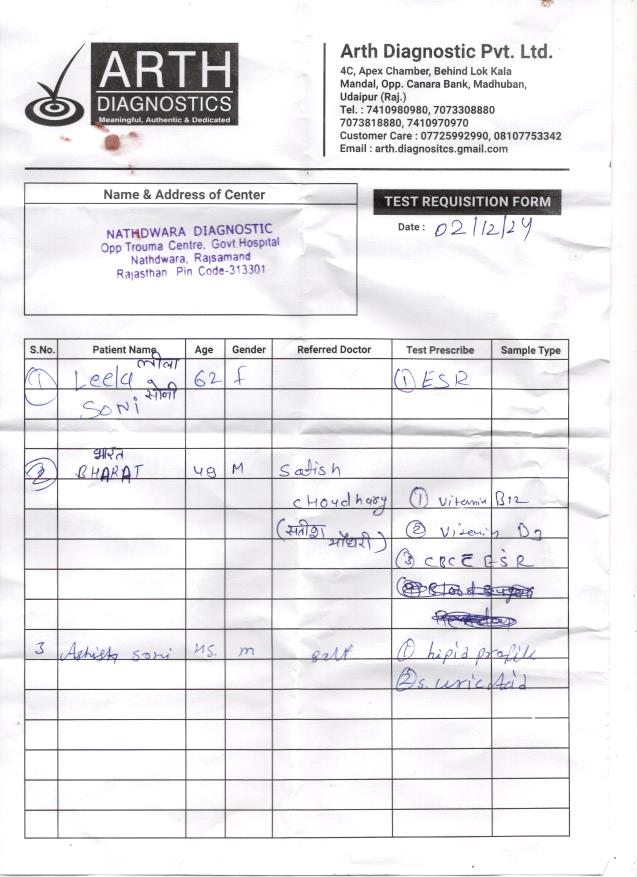 ARTH
DIAGNOSTICS
Meaningful, Authentic & Dedicated
Arth Diagnostic Pvt. Ltd.
4C, Apex Chamber, Behind Lok Kala
Mandal, Opp. Canara Bank, Madhuban,
Udaipur (Raj.)
Tel. : 7410980980, 7073308880
7073818880, 7410970970
Customer Care : 07725992990, 08107753342
Email : arth.diagnositcs.gmail.com
Name & Address of Center
NATHDWARA DIAGNOSTIC
Opp Trouma Centre, Govt Hospital
Nathdwara, Rajsamand
Rajasthan Pin Code-313301
TEST REQUISITION FORM
Date : 02/12/24
S.No. Patient Name Age Gender Referred Doctor Test Prescribe Sample Type
लीला
1 Leela 62 f 1 ESR
सोनी
SONI
भारत
2 BHARAT 48 M Satish
CHoudhary 1 Vitamin B12
(सतीश 2 Vitamin D3
चौधरी)
3 CBC ESR
3 Ashish soni 45. m self 1 lipid profile
2 s. uric Acid